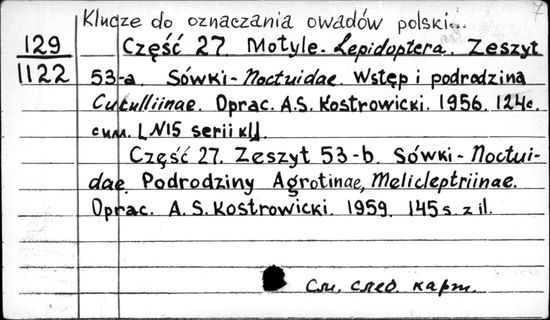 Klucze do oznaczania owadów polski...
7
129
1122
Część 27. Motyle. Lepidoptera. Zeszyt
53-a. Sówki-Noctuidae. Wstęp i podrodzina
Cuculliinae. Oprac. A.S. Kostrowicki. 1956. 124c.
N15 serii
Część 27. Zeszyt 53-b. Sówki-Noctui-
dae. Podrodziny Agrotinae, Melicleptriinae.
Oprac. A.S. Kostrowicki. 1959. 145s. z il.
См. след. карт.